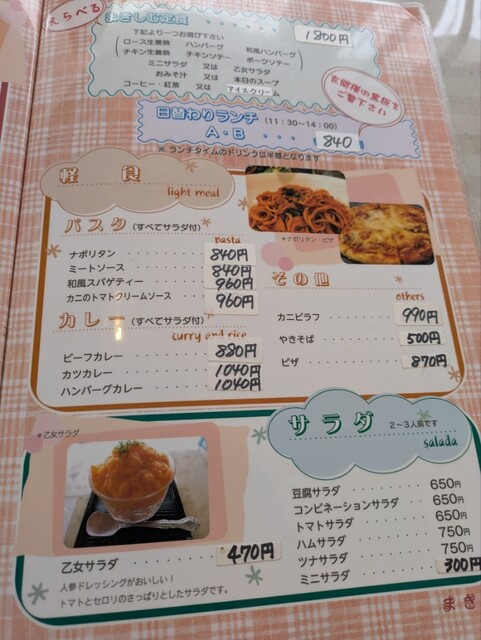 えらべる
まきしむ定食
1800円
下記より一つお選び下さい
ロース生姜焼 ハンバーグ 和風ハンバーグ
チキン生姜焼 チキンソテー ポークソテー
ミニサラダ 又は 乙女サラダ
おみそ汁 又は 本日のスープ
コーヒー・紅茶 又は アイスクリーム
玄関横の黒板を
ご覧下さい
日替わりランチ (11:30~14:00)
A・B ・・・・ 840
※ ランチタイムのドリンクは半額となります
軽食
light meal
＊ナポリタン・ピザ
パスタ (すべてサラダ付)
pasta
ナポリタン 840円
ミートソース 840円
和風スパゲティー 960円
カニのトマトクリームソース 960円
カレー (すべてサラダ付)
curry and rice
ビーフカレー 880円
カツカレー 1040円
ハンバーグカレー 1040円
その他
others
カニピラフ 990円
やきそば 500円
ピザ 870円
サラダ 2～3人前です
salada
＊乙女サラダ
豆腐サラダ 650円
コンビネーションサラダ 650円
トマトサラダ 650円
ハムサラダ 750円
ツナサラダ 750円
ミニサラダ 300円
乙女サラダ 470円
人参ドレッシングがおいしい！
トマトとセロリのさっぱりとしたサラダです。
まき